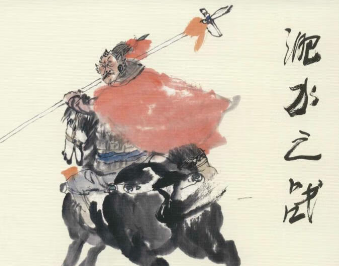 淝水之战